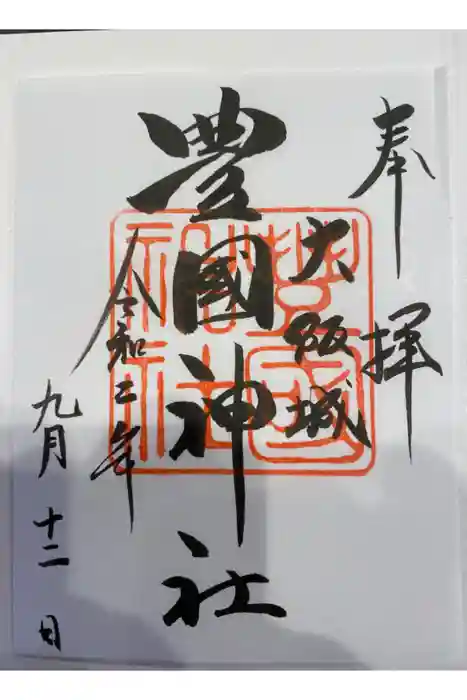 奉拝
大阪城
豊國神社
令和二年
九月十二日
豊國
神社